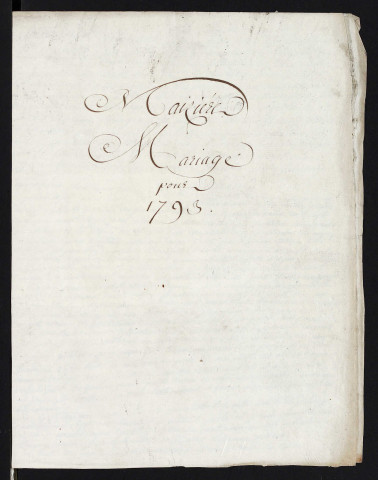 Maizière
Mariage
pour
1793.